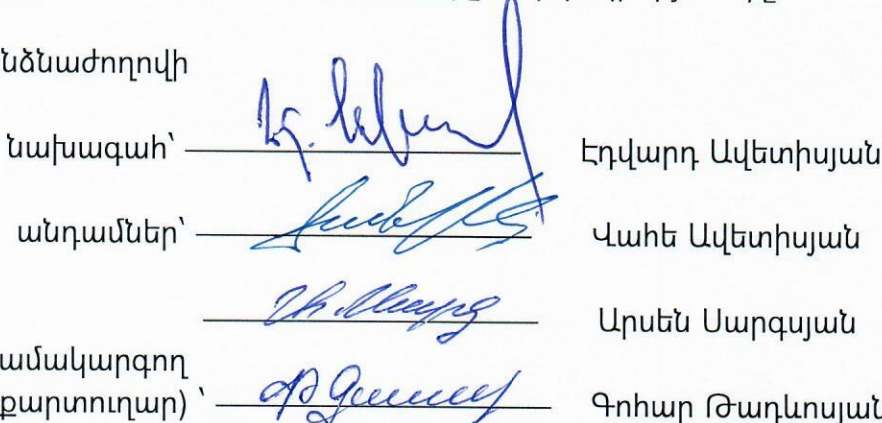 նձնաժողովի
նախագահ՝ Էդվարդ Ավետիսյան
անդամներ՝ Վահե Ավետիսյան
Արսեն Սարգսյան
ամակարգող
քարտուղար) ՝ Գոհար Թադևոսյան